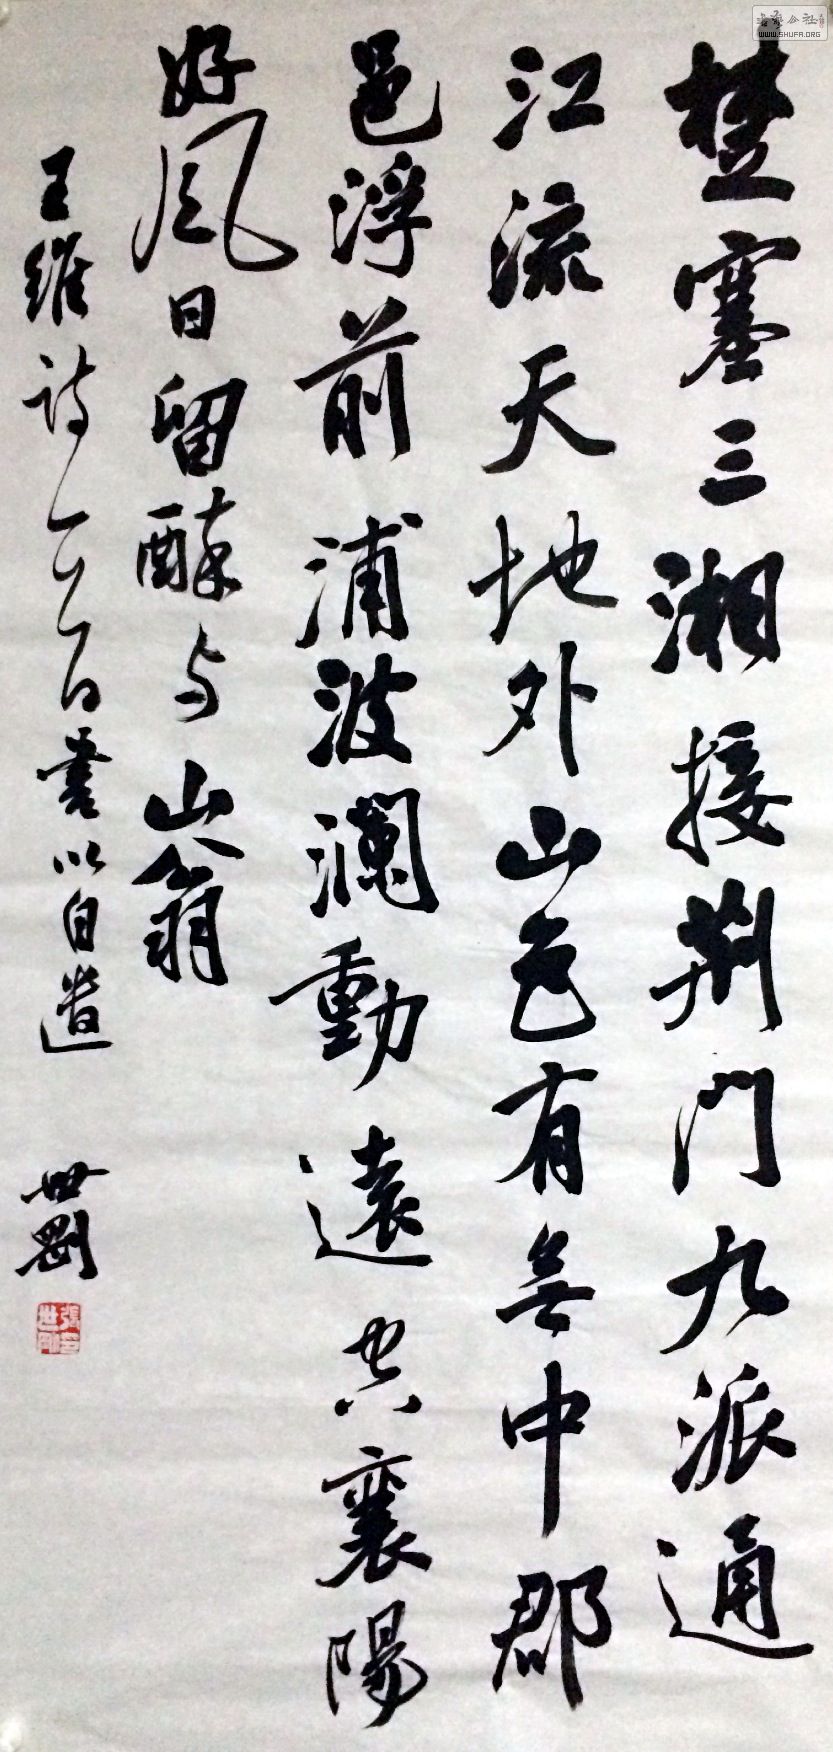 楚塞三湘接荆门九派通
江流天地外山色有無中郡
邑浮前浦波瀾動遠空襄陽
好风日留醉与山翁
王维诗一首书以自遣 世剛
張世剛印
书法公社
WWW.SHUFA.ORG